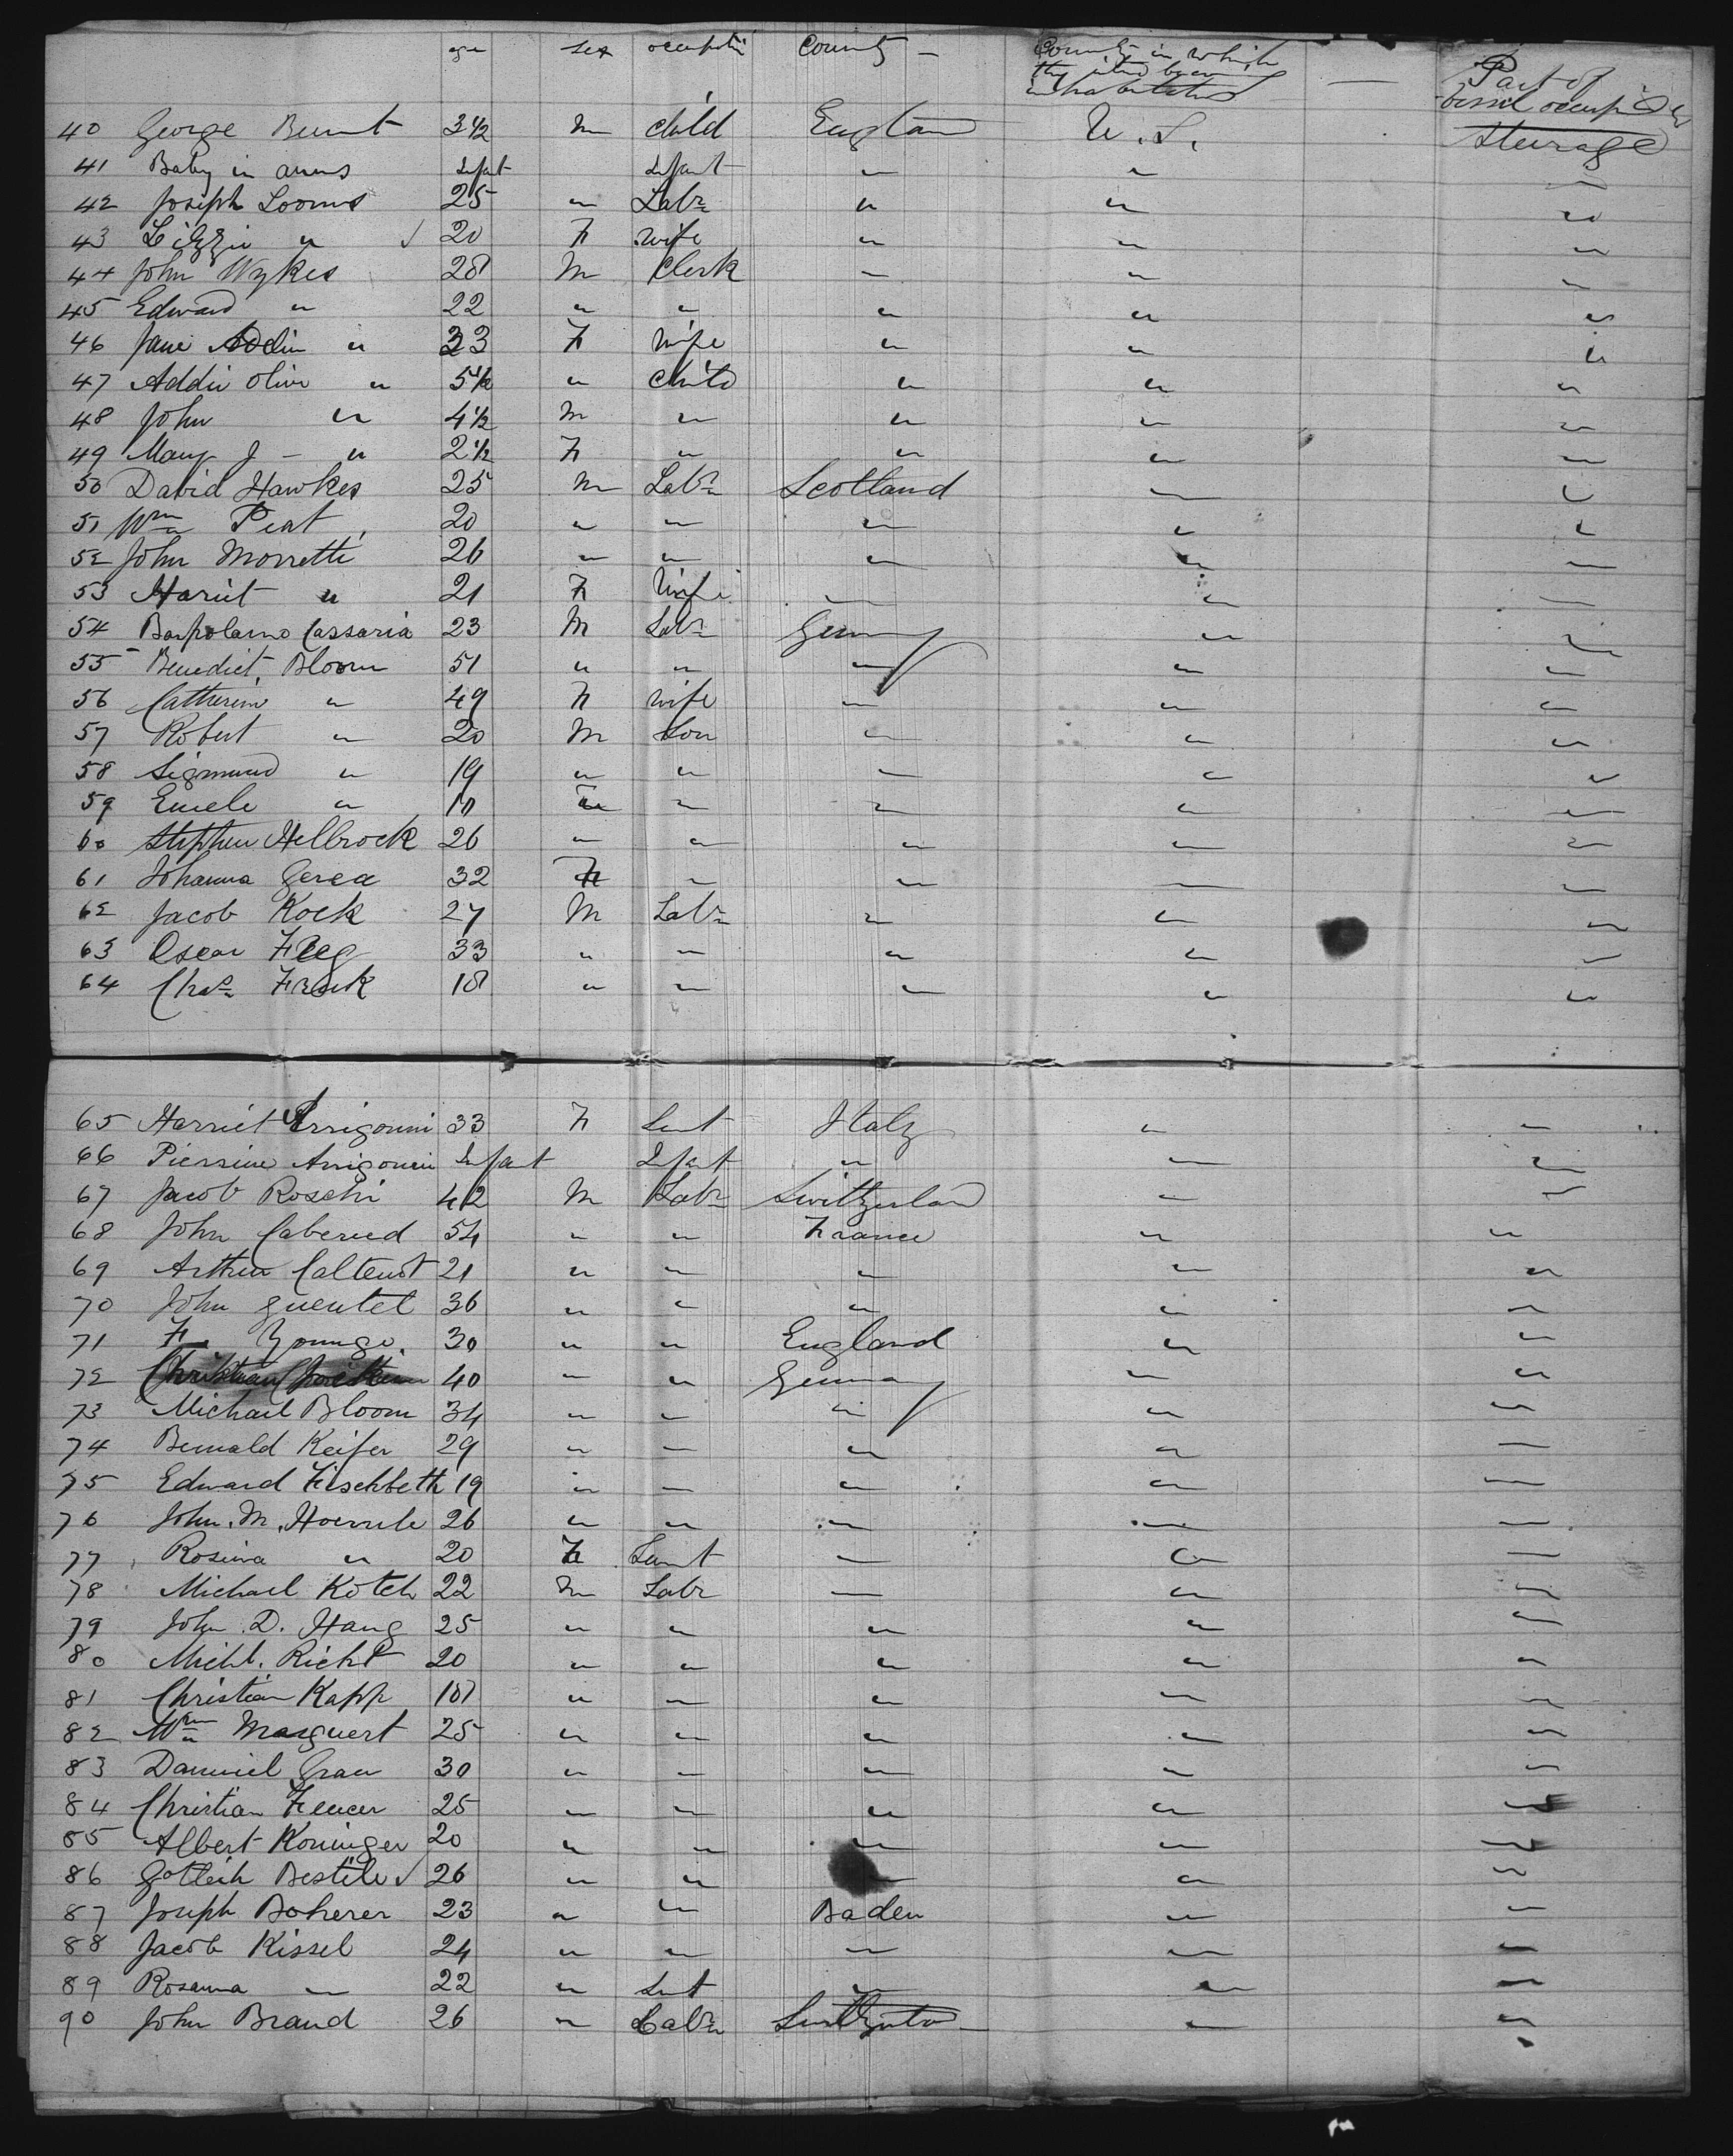 age sex occupatn Country — Country in which they intend becoming inhabitants — Part of vessel occupied by
40 George Burnt 3½ m child England U.S. Steerage
41 Baby in arms Infant Infant " " "
42 Joseph Looms 25 " Labr " " "
43 Lizzie " ✓ 20 F wife " " "
44 John Wykes 28 m Clerk " " "
45 Edward " 22 " " " " "
46 Jane " 33 F wife " " "
47 Addie Olive " 5½ " child " " "
48 John " 4½ m " " " "
49 Mary J — " 2½ F " " " "
50 David Hawkes 25 m Labr Scotland " "
51 Wm Peat 20 " " " " "
52 John Morretti 26 " " " " "
53 Hariet " 21 F wife " " "
54 Cassaria 23 M Labr Germany " "
55 Benedict Bloom 51 " " " " "
56 Catherine " 49 F wife " " "
57 Robert " 20 M Son " " "
58 Sigmund " 19 " " " " "
59 Emele " 10 " " " "
60 Stephen Helbrock 26 " " " " "
61 Johanna Gerea 32 F " " " "
62 Jacob Kock 27 M Labr " " "
63 Oscar 33 " " " " "
64 Chas Frank 18 " " " " "
65 Harriet Arrigonni 33 F Italy " "
66 Piersine Arrigonni Infant Infant " " "
67 Jacob Roschi 42 M Labr Switzerland " "
68 John 54 " " France " "
69 Arthur 21 " " " " "
70 John Quentel 36 " " " " "
71 F. Younge. 30 " " England " "
72 Christian 40 " " Germany " "
73 Michael Bloom 34 " " " " "
74 Bernald Keifer 29 " " " " "
75 Edward Fischbeth 19 " " " " "
76 John. M. Hoernle 26 " " " " "
77 Rosina " 20 F " " "
78 Michael Kotch 22 m Labr " " "
79 John D. Haug 25 " " " " "
80 Michl. Richt 20 " " " " "
81 Christian Kapp 18 " " " " "
82 Wm Marguert 25 " " " " "
83 Danniel Grau 30 " " " " "
84 Christian 25 " " " " "
85 Albert Koninger 20 " " " " "
86 Gotleib Bestile ✓ 26 " " " " "
87 Joseph Boherer 23 " " Baden " "
88 Jacob Kissel 24 " " " " "
89 Rosanna " 22 " " " "
90 John Brand 26 " Labr Switzerland " "